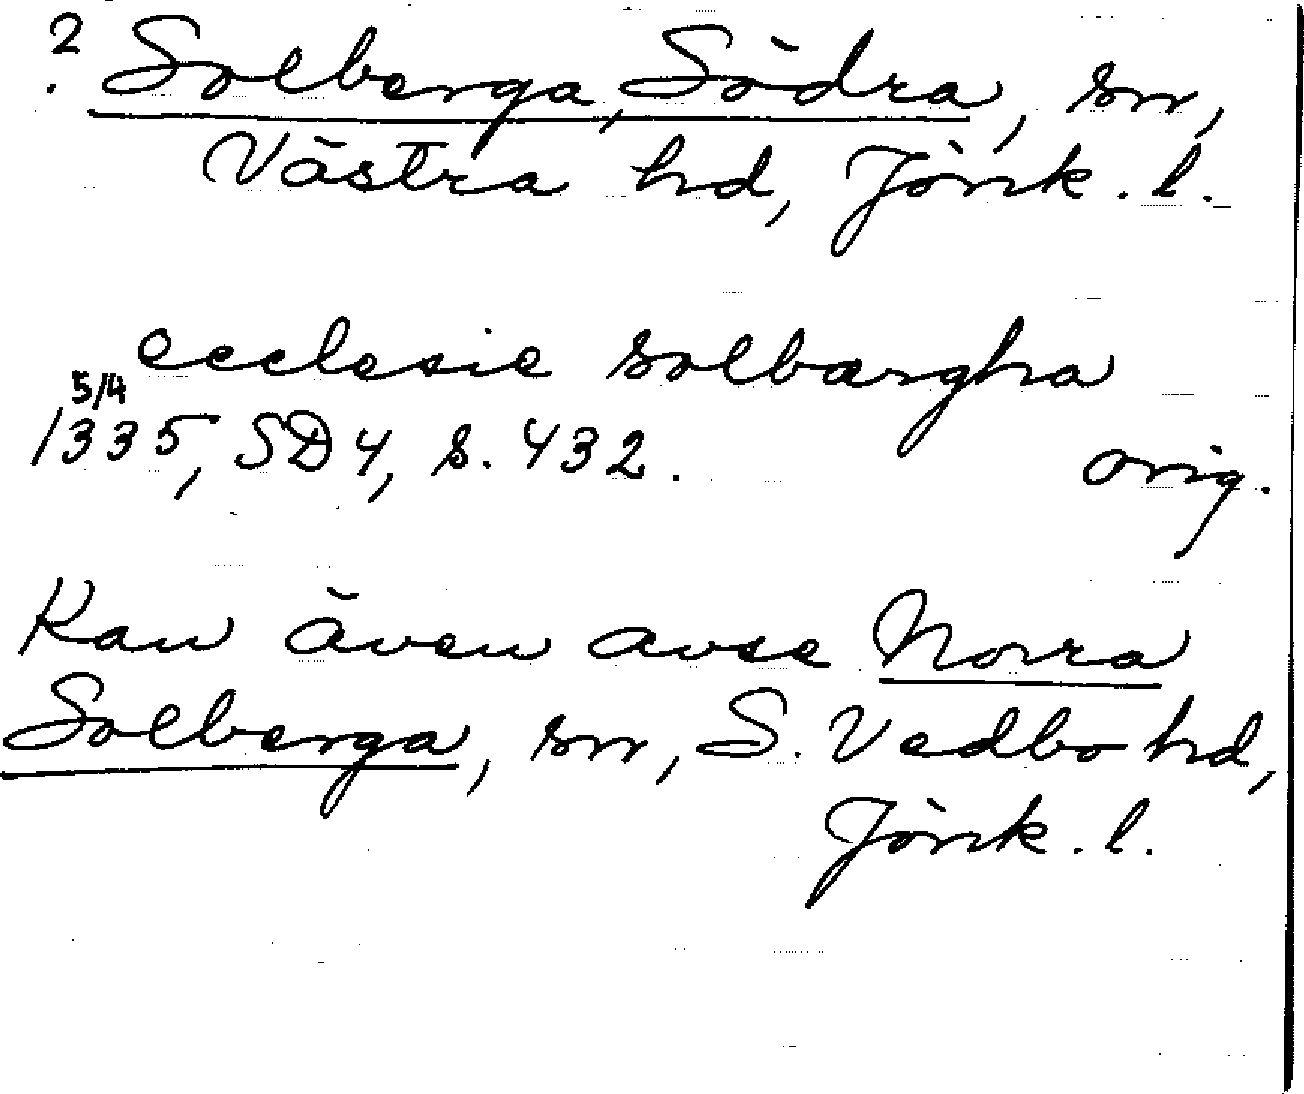 ? Solberga, Södra, sn,
Västra hd, Jönk. l.
ecclesie solbærgha
5/4
1335, SD 4, s. 432. orig.
Kan även avse Norra
Solberga, sn, S. Vedbo hd,
Jönk. l.